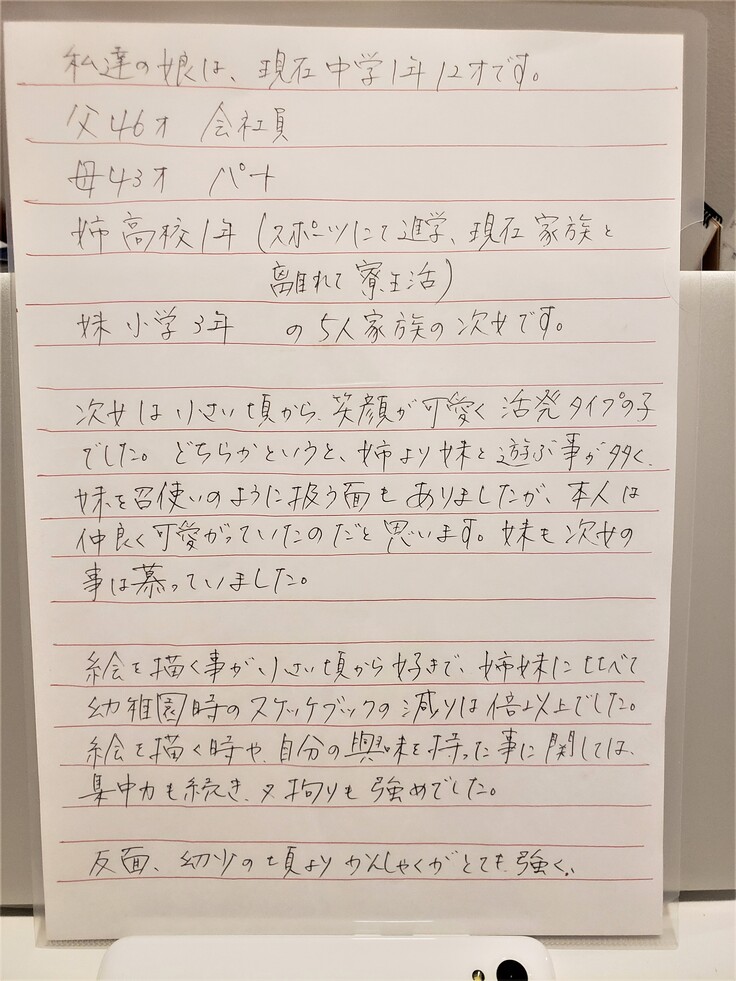 私達の娘は、現在中学1年12才です。
父46才 会社員
母43才 パート
姉高校1年(スポーツにて進学、現在家族と
離れて寮生活)
妹小学3年 の5人家族の次女です。
次女は小さい頃から、笑顔が可愛く活発タイプの子
でした。どちらかというと、姉より妹と遊ぶ事が多く、
妹を召使いのように扱う面もありましたが、本人は
仲良く可愛がっていたのだと思います。妹も次女の
事は慕っていました。
絵を描く事が小さい頃から好きで、姉妹に比べて
幼稚園時のスケッチブックの減りは倍以上でした。
絵を描く時や、自分の興味を持った事に関しては、
集中力も続き、又拘りも強めでした。
反面、幼少の頃よりかんしゃくがとても強く、